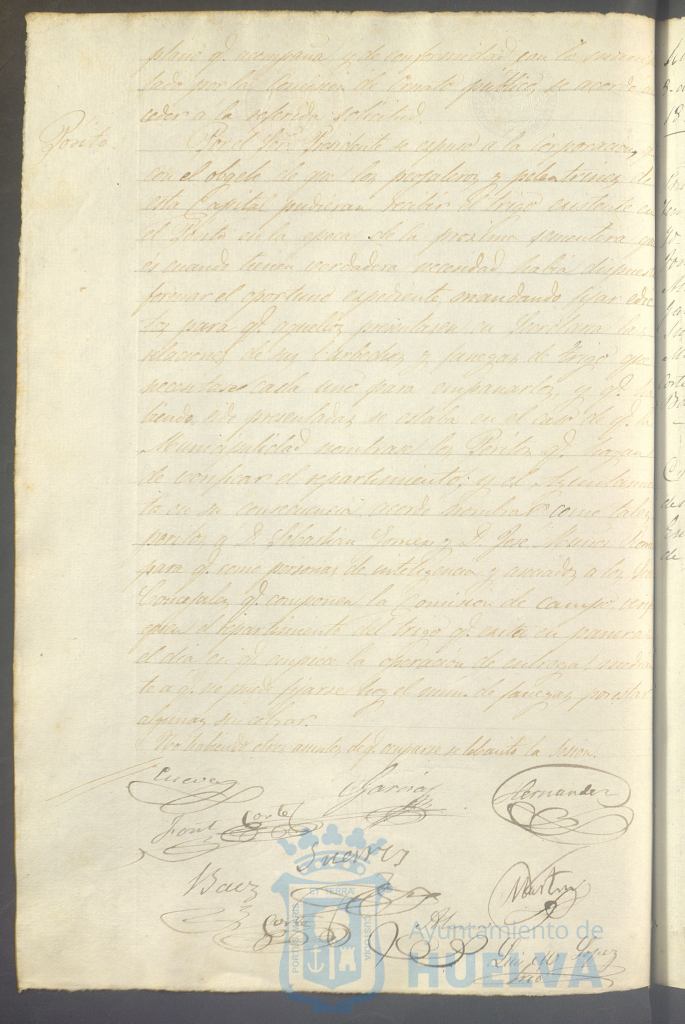 plano q.e acompaña y de conformidad con lo
tado por la Comision de Ornato público, se acordó
ceder a la referida solicitud.
Posito.
Por el Sor. Presidente se espuso a la Corporacion, q.
con el objeto de que los pegujaleros y pelantrines de
esta Capital pudieran recibir el trigo existente en
el Posito en la epoca de la procsima sementera que
es cuando tienen verdadera necesidad había dispues
formar el oportuno espediente mandando fijar edic
tos para q.e aquellos presentasen en Secretaria las
relaciones de sus barbechos y fanegas de trigo que
necesitase cada uno para empanarlos, y q.e ha
biendo sido presentadas se estaba en el caso de q.e la
Municipalidad nombrase los Peritos q.e hayan
de verificar el repartimiento; y el Ayuntamien
to en su consecuencia acordó nombrar como tales
peritos a D. Sebastian Gomez y D. Jose Muñoz
para q.e como personas de inteligencia y asociados a los
Concejales q.e componen la Comision de campo
el repartimiento del trigo q.e exista en paneras
el dia en q.e empiece la operacion de entrega; median
te a q.e no puede fijarse hoy el num.o de fanegas por estar
algunas sin cobrar.
No habiendo otros asuntos de q.e ocuparse se lebantó la sesion.
Cueva
Garcia
Hernandez
Cortes
Guerra
Baez
Martin
Corte
Luis M.a Lopez
ET TERRÆ
PORTUS MARIS
CUSTODIA
Ayuntamiento de
HUELVA